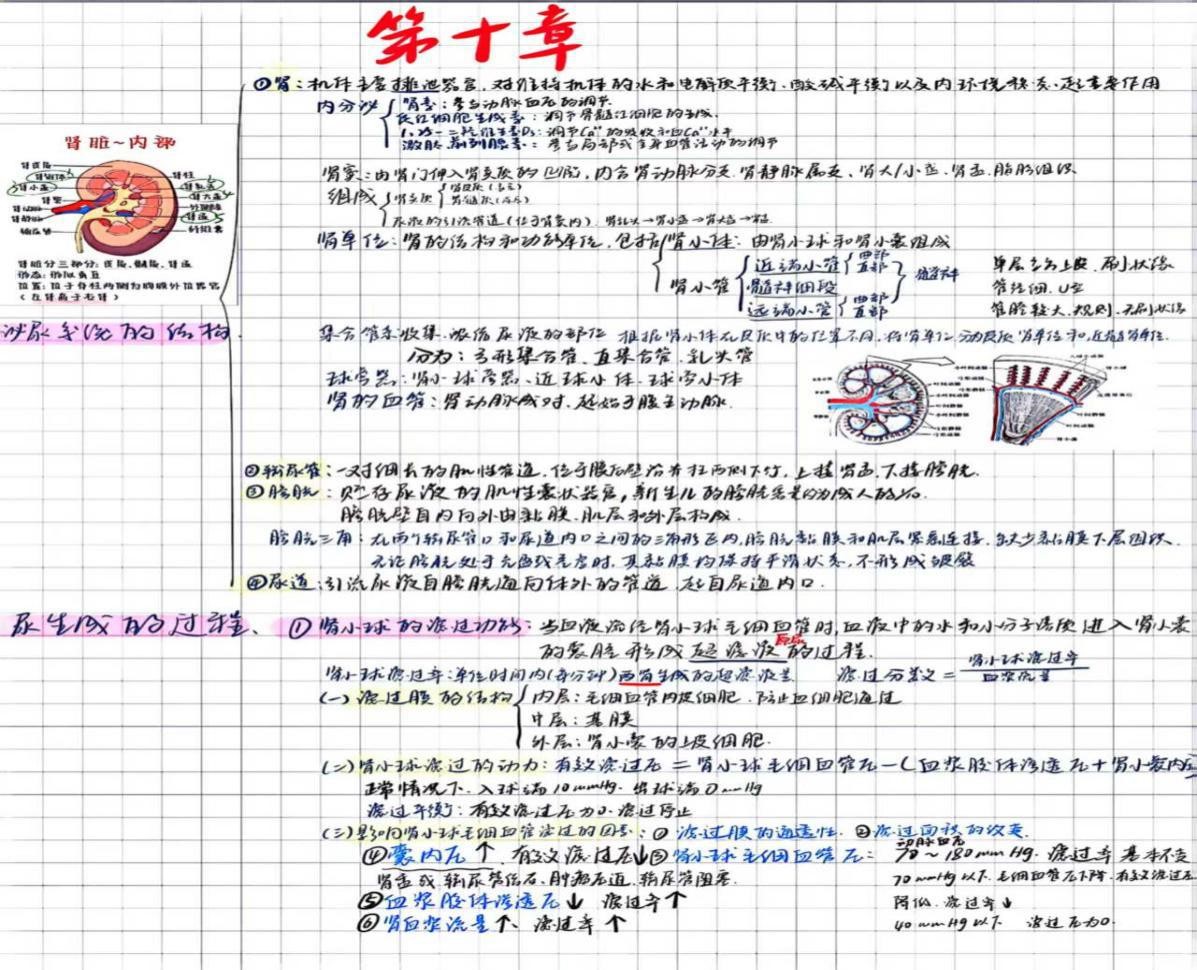 第十章
①肾：机体主要排泄器官，对维持机体的水和电解质平衡、酸碱平衡以及内环境稳态起重要作用
内分泌
肾素：参与动脉血压的调节.
促红细胞生成素：调节骨髓红细胞的生成.
1,25-二羟维生素D₃：调节Ca²⁺的吸收和血Ca²⁺水平
激肽、前列腺素：参与局部或全身血管活动的调节
肾脏~内部
肾柱
肾小盏
肾大盏
肾盂
输尿管
肾脏分三部分：皮质、髓质、肾盂
形态：形似蚕豆
位置：位于脊柱两侧为腹膜外位器官
（左肾高于右肾）
肾窦：由肾门伸入肾实质的凹陷，内含肾动脉分支、肾静脉属支、肾大/小盏、肾盂、脂肪组织
组成
肾实质
肾皮质
肾髓质
尿液的引流管道（位于肾窦内）：肾乳头→肾小盏→肾大盏→肾盂
肾单位：肾的结构和功能单位，包括
肾小体：由肾小球和肾小囊组成
肾小管
近端小管
曲部
直部
髓袢细段
远端小管
曲部
直部
髓袢
单层立方上皮、刷状缘
管径细、U型
管腔较大、规则、无刷状缘
泌尿系统的结构.
集合管系收集、浓缩尿液的部位 根据肾小体在皮质中的位置不同，将肾单位分为皮质肾单位和近髓肾单位.
分为：弓形集合管、直集合管、乳头管
球旁器：肾小球旁器、近球小体、球旁小体
肾的血管：肾动脉成对，起始于腹主动脉.
②输尿管：一对细长的肌性管道，位于腹后壁沿脊柱两侧下行，上接肾盂，下接膀胱.
③膀胱：贮存尿液的肌性囊状器官，新生儿的膀胱容量约为成人的1/10.
膀胱壁自内向外由黏膜、肌层和外层构成.
膀胱三角：在两个输尿管口和尿道内口之间的三角形区内，膀胱黏膜和肌层紧密连接，缺少黏膜下层组织.
无论膀胱处于充盈或充空时，其黏膜均保持平滑状态，不形成皱襞
④尿道：引流尿液自膀胱通向体外的管道，起自尿道内口.
尿生成的过程、
①肾小球的滤过功能：当血液流经肾小球毛细血管时，血液中的水和小分子溶质进入肾小囊
的囊腔形成超滤液的过程.
原尿
肾小球滤过率：单位时间内（每分钟）两肾生成的超滤液量
滤过分数＝肾小球滤过率/血浆流量
（一）滤过膜的结构
内层：毛细血管内皮细胞、防止血细胞通过
中层：基膜
外层：肾小囊的上皮细胞.
（二）肾小球滤过的动力：有效滤过压＝肾小球毛细血管压－（血浆胶体渗透压＋肾小囊内压
正常情况下，入球端10mmHg、出球端0mmHg
滤过平衡：有效滤过压为0、滤过停止
（三）影响肾小球毛细血管滤过的因素：①滤过膜的通透性、②滤过面积的改变
④囊内压↑ 有效滤过压↓③肾小球毛细血管压：
动脉血压
70～180mmHg、滤过率基本不变
肾盂或输尿管结石、肿瘤压迫、输尿管阻塞.
70mmHg以下、毛细血管压下降、有效滤过压
⑤血浆胶体渗透压↓ 滤过率↑
降低、滤过率↓
⑥肾血浆流量↑、滤过率↑
40mmHg以下 滤过压为0.